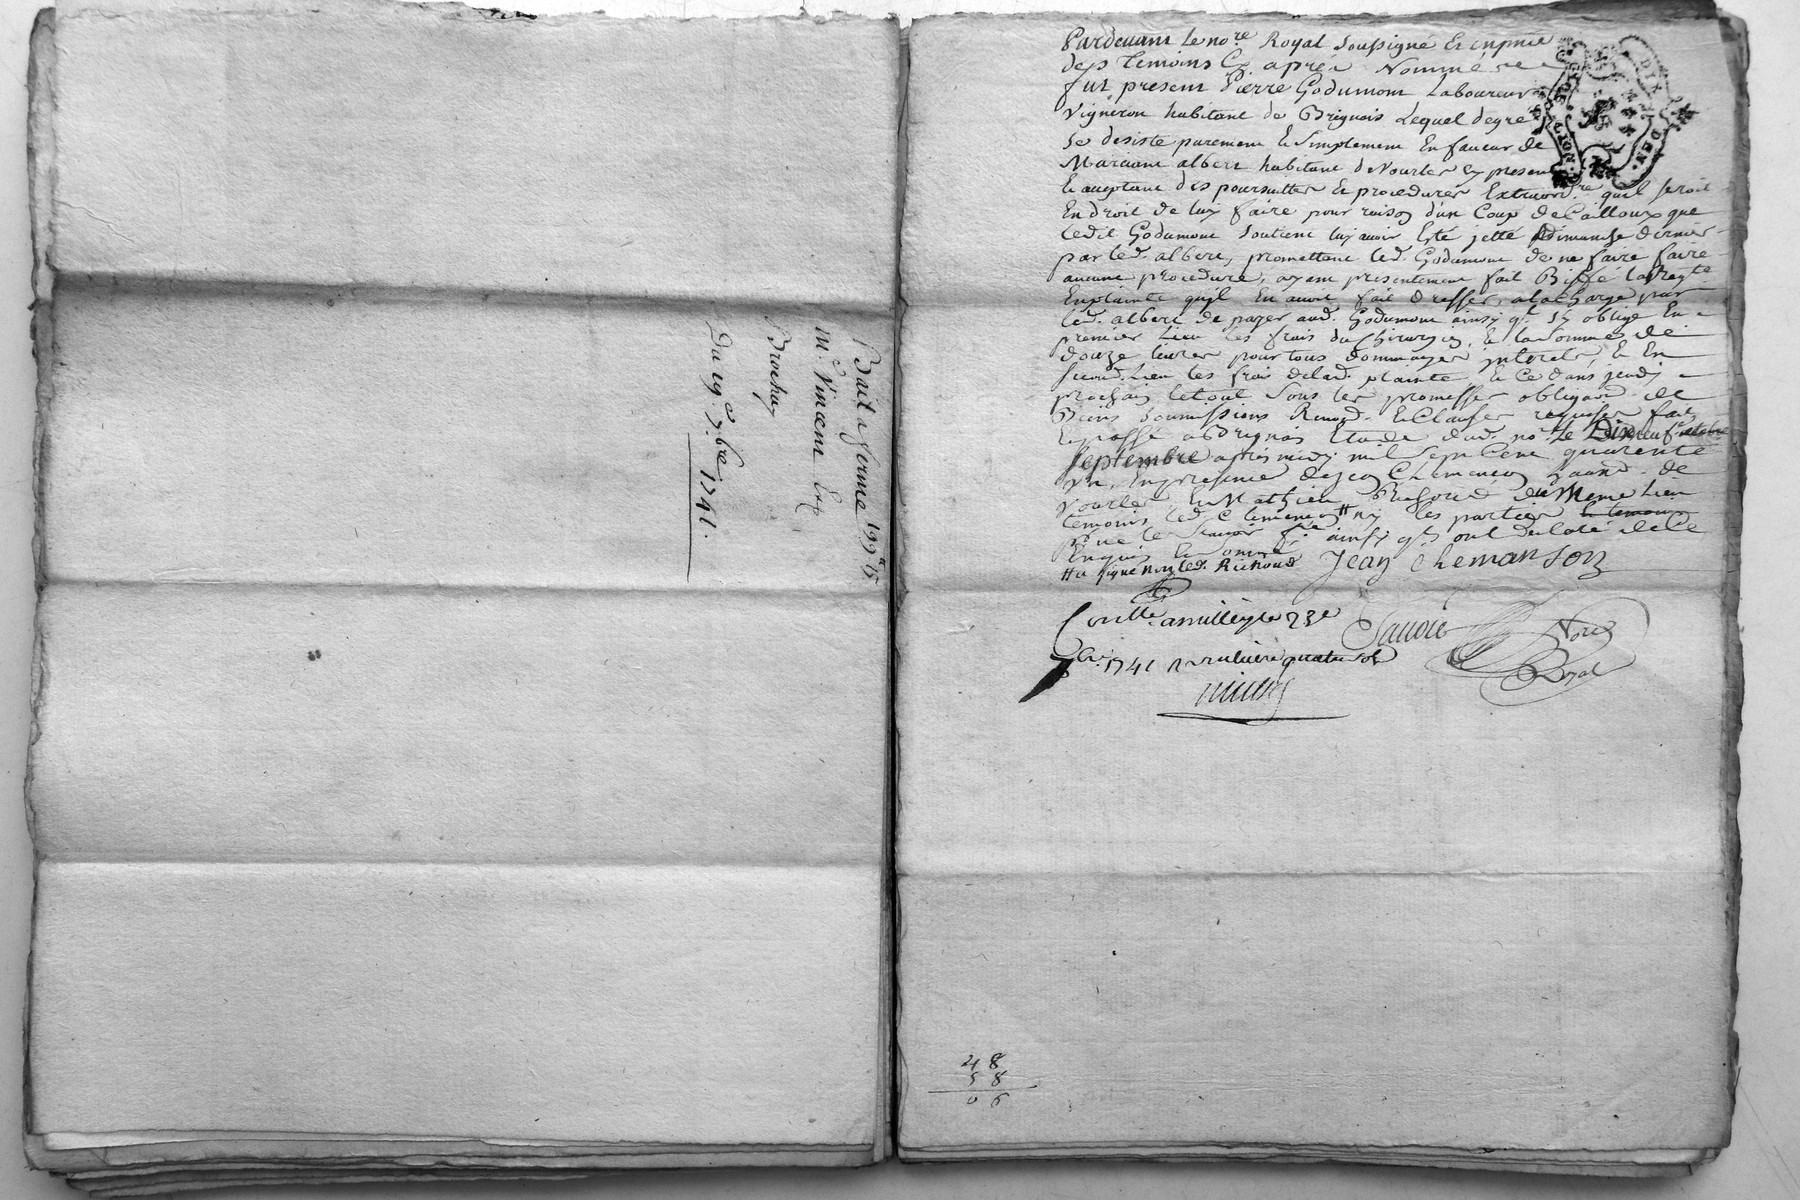 Bail a ferme 199ᵗ 15
mᵉ. Vincent Et
Brochay
Du 19ᵉ 7bre 1741.
Pardevant Le noʳᵉ Royal Soussigné Et enpnce
des temoins Cy apres Nommé
fut present Pierre Godumont Laboureur
Vigneron habitant de Brignais Lequel degré
Se desiste purement & Simplement En faveur de
albert habitant deVourles cy present
Et aceptant des poursuittes & procedures Extraordʳᵉˢ quil seroit
En droit de luy faire pour raison d'un Coup de Cailloux que
ledit Godumont soutient luy avoir Esté jetté dimanche dernier
par led. albert, promettant led. Godumont de ne faire faire
aucune procedure, ayant presentement fait Biffé la Reqte
Enplainte quil En avoit fait dresser, alacharge par
led. albert de payer aud. Godumont ainsy qˡ. Sy oblige En
premier Lieu les frais du Chirurgien, & la somme de
douze livres pour tous dommages interets & En
second. Lieu les frais delad. plainte & Ce dans jeudy
prochain letout Sous les promesses obligaon. de
Biens Soumissions Renonᵈ. & Clauses requises fait
Et passé a Brignais Etude dud. noʳᵉ Le Dixneufᵉ octobre
Septembre apres midy mil Sept Cent quarente
un, En presence de jean Chemancon de
Vourles Et Mathieu Richoud du Meme Lieu
temoins led. Chemancon # ny les parties Et temoins
pour ne le scavoir fᵉ ainsy qˡˢ ont declaré de Ce
Enquis Et
# a signé non led. Richoud Jean chemanson
Conllé amillery le 23e
7bre 1741 R quatre sols
Noʳᵉ
Royal
48
58
06